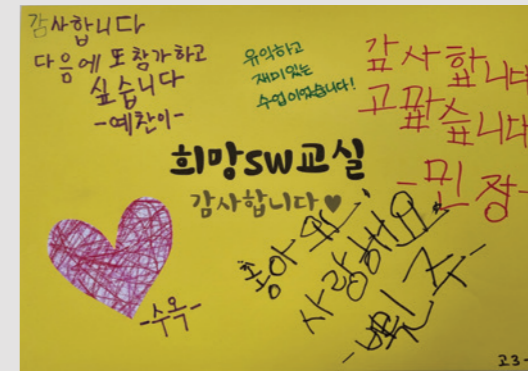 감사합니다
다음에 또 참가하고
싶습니다
-예찬이-
유익하고
재미있는
수업이었습니다!
감사합니다
고맙습니다
-민장
희망SW교실
감사합니다♥
-수옥-
좋아요!
사랑해요
고3-